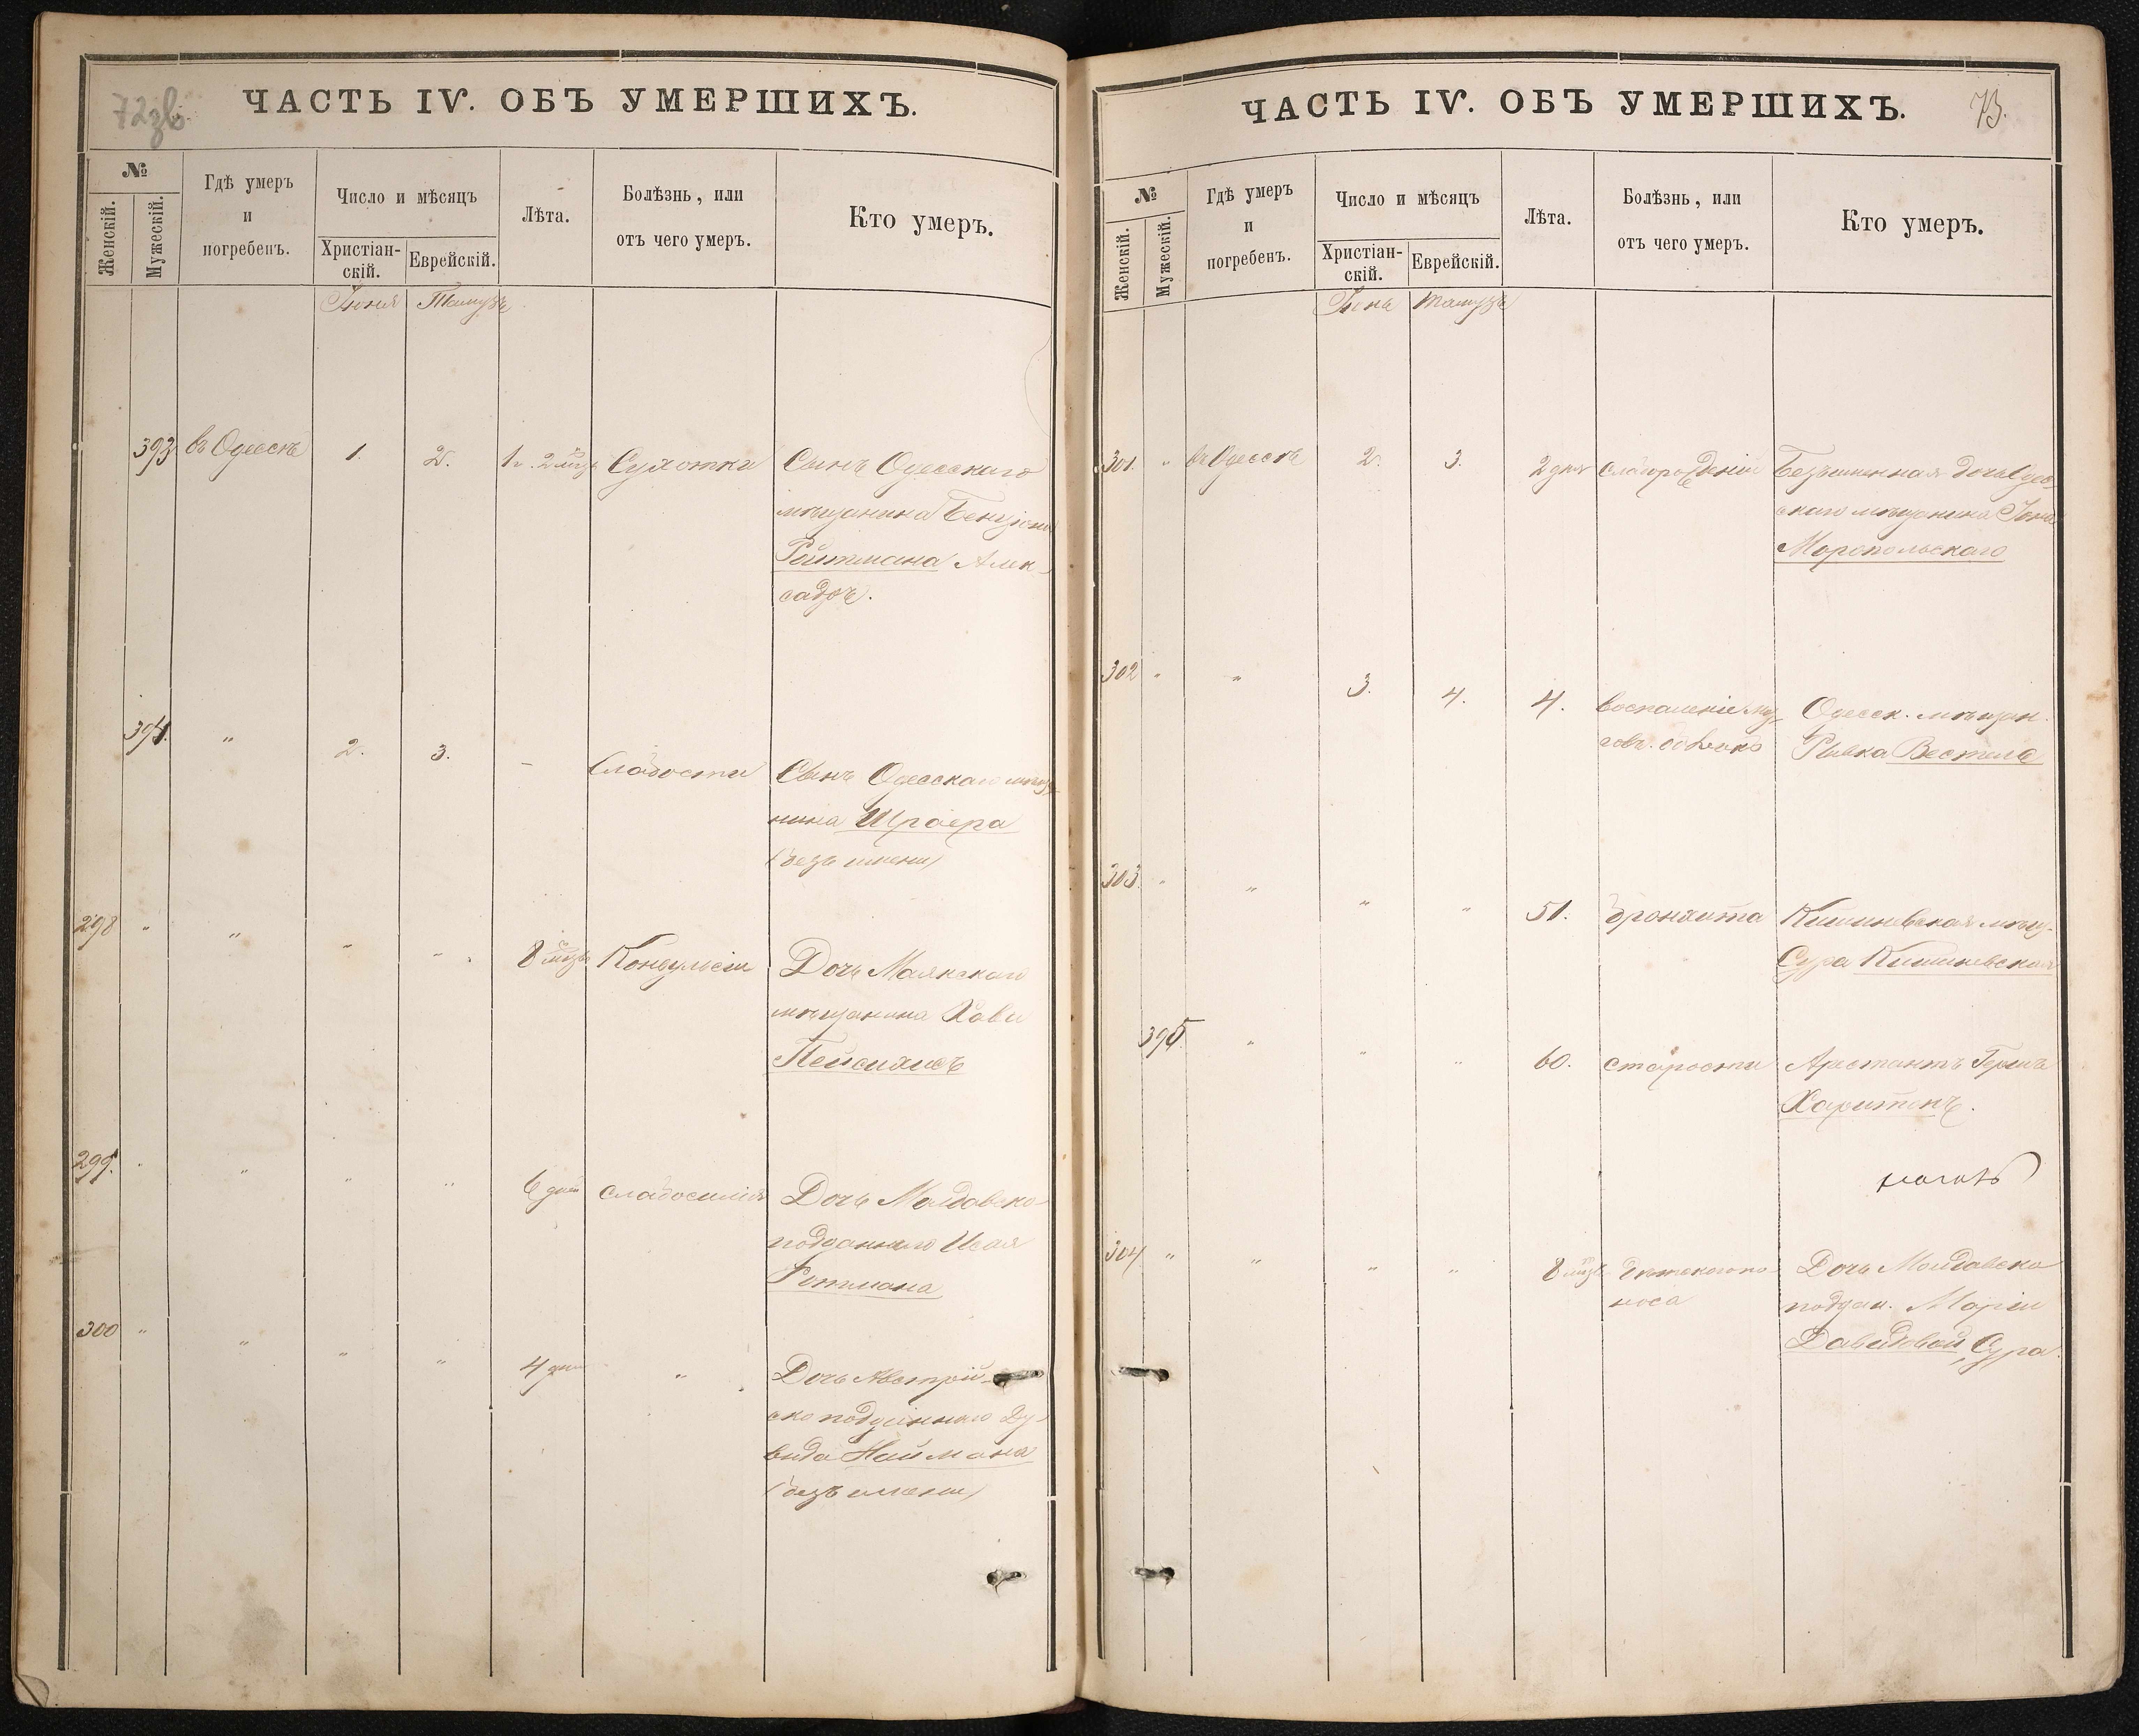 72 зв.
ЧАСТЬ IV. ОБЪ УМЕРШИХЪ.
№
Женскій.
Мужескій.
Гдѣ умеръ
и
погребенъ.
Число и мѣсяцъ
Христіан-
скій.
Еврейскій.
Лѣта.
Болѣзнь, или
отъ чего умеръ.
Кто умеръ.
Іюня Тамузъ
393 въ Одессѣ 1. 2. 1 г. 2 мѣс. Сухотки Сынъ Одесскаго
мѣщанина Бенціона
Ройтмана Алек-
садръ.
394. " 2. 3. - Слабости Сынъ Одесскаго мѣща
нина Шраера
(безъ имени)
298 " " " " 8 мѣс. Конвульсіи Дочь Маякскаго
мѣщанина Хави
Пейсихисъ
299. " " " " 6 дней слабосилія Дочь Молдавско-
подданнаго Исая
Ротмана
300 " " " " 4 дня " Дочь Австрій-
ско подданнаго Ду-
вида Наймана
(безъ имени)
73.
ЧАСТЬ IV. ОБЪ УМЕРШИХЪ.
№
Женскій.
Мужескій.
Гдѣ умеръ
и
погребенъ.
Число и мѣсяцъ
Христіан-
скій.
Еврейскій.
Лѣта.
Болѣзнь, или
отъ чего умеръ.
Кто умеръ.
Іюнь Тамузъ
301. " въ Одессѣ 2. 3. 2 дня слаборожденій Безъименная дочь Одес-
скаго мѣщанина Іона
Моропольскаго
302 " " 3. 4. 4. воспаленіе моз
гов. Одесск. мѣщан.
Рывка Вестель
303. " " " " 51. бронхита Кишиневская мѣщ.
Сура Кишиневская
395. " " " 60. старости Арестантъ Герша
Харитонъ.
304 " " " " 8 мѣс. дѣтскаго по
носа Дочь Молдавско
поддан. Маріи
Давидовой, Сура.